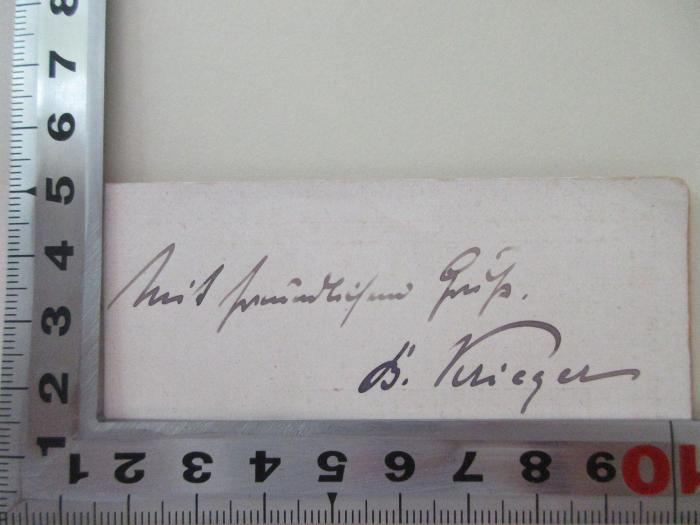 Mit freundlichem Gruß.
B. Krieger
8
7
6
5
4
3
2
1
1 2 3 4 5 6 7 8 9 10